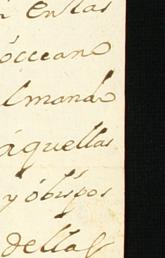 en las
óccean
l manda
áquellas
y óbispos
dellas